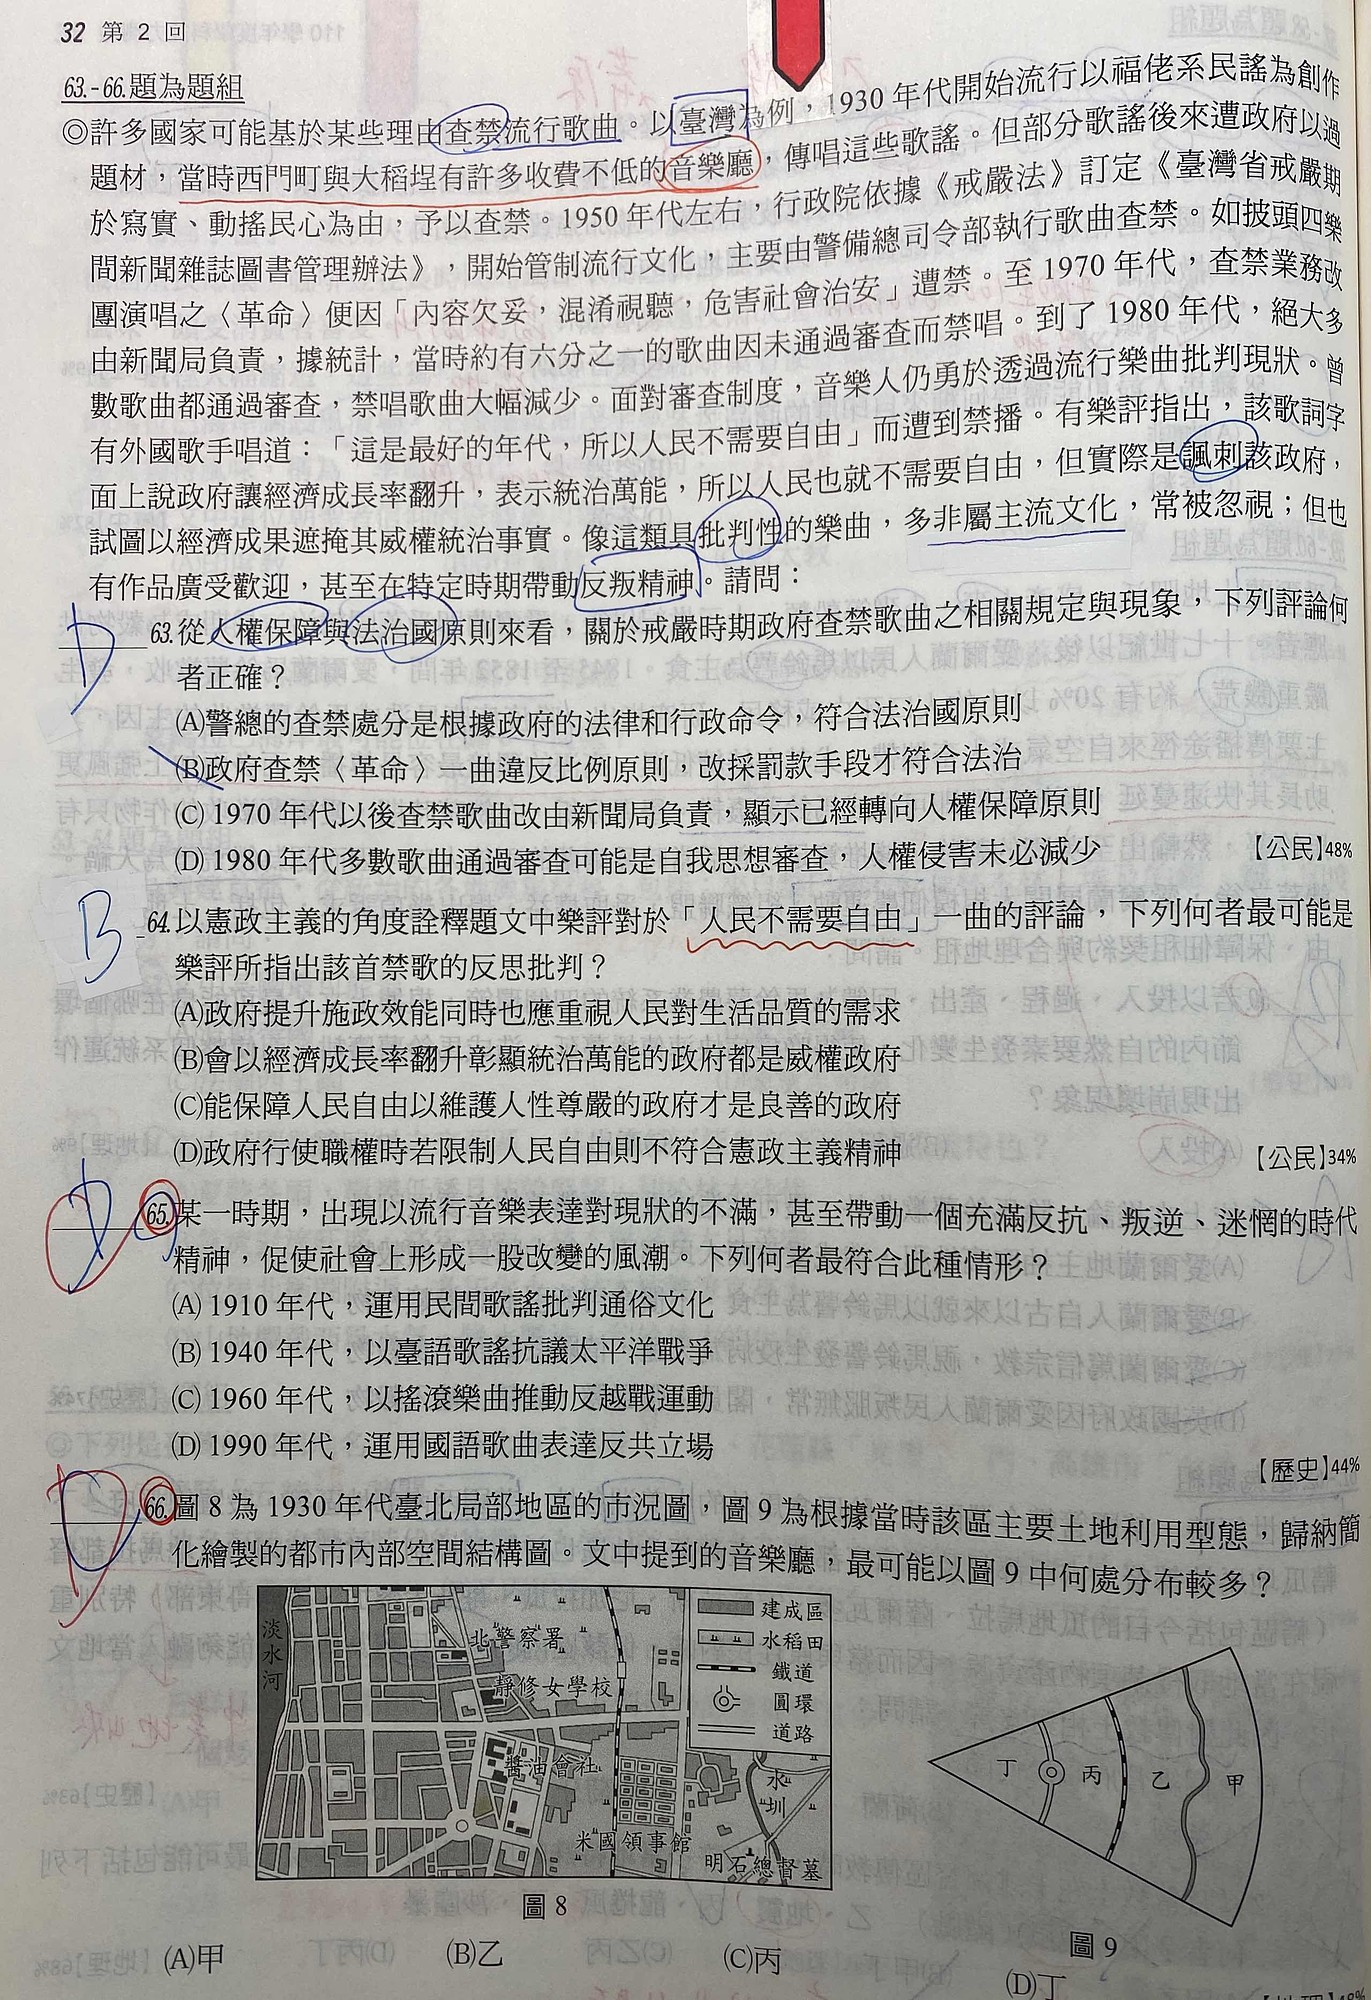 32 第 2 回
63.-66.題為題組
◎許多國家可能基於某些理由查禁流行歌曲。以臺灣為例，1930 年代開始流行以福佬系民謠為創作
題材，當時西門町與大稻埕有許多收費不低的音樂廳，傳唱這些歌謠。但部分歌謠後來遭政府以過
於寫實、動搖民心為由，予以查禁。1950 年代左右，行政院依據《戒嚴法》訂定《臺灣省戒嚴期
間新聞雜誌圖書管理辦法》，開始管制流行文化，主要由警備總司令部執行歌曲查禁。如披頭四樂
團演唱之〈革命〉便因「內容欠妥，混淆視聽，危害社會治安」遭禁。至 1970 年代，查禁業務改
由新聞局負責，據統計，當時約有六分之一的歌曲因未通過審查而禁唱。到了 1980 年代，絕大多
數歌曲都通過審查，禁唱歌曲大幅減少。面對審查制度，音樂人仍勇於透過流行樂曲批判現狀。曾
有外國歌手唱道：「這是最好的年代，所以人民不需要自由」而遭到禁播。有樂評指出，該歌詞字
面上說政府讓經濟成長率翻升，表示統治萬能，所以人民也就不需要自由，但實際是諷刺該政府，
試圖以經濟成果遮掩其威權統治事實。像這類具批判性的樂曲，多非屬主流文化，常被忽視；但也
有作品廣受歡迎，甚至在特定時期帶動反叛精神。請問：
D 63.從人權保障與法治國原則來看，關於戒嚴時期政府查禁歌曲之相關規定與現象，下列評論何
者正確？
(A)警總的查禁處分是根據政府的法律和行政命令，符合法治國原則
(B)政府查禁〈革命〉一曲違反比例原則，改採罰款手段才符合法治
(C) 1970 年代以後查禁歌曲改由新聞局負責，顯示已經轉向人權保障原則
(D) 1980 年代多數歌曲通過審查可能是自我思想審查，人權侵害未必減少
【公民】48%
B 64.以憲政主義的角度詮釋題文中樂評對於「人民不需要自由」一曲的評論，下列何者最可能是
樂評所指出該首禁歌的反思批判？
(A)政府提升施政效能同時也應重視人民對生活品質的需求
(B)會以經濟成長率翻升彰顯統治萬能的政府都是威權政府
(C)能保障人民自由以維護人性尊嚴的政府才是良善的政府
(D)政府行使職權時若限制人民自由則不符合憲政主義精神
【公民】34%
D 65.某一時期，出現以流行音樂表達對現狀的不滿，甚至帶動一個充滿反抗、叛逆、迷惘的時代
精神，促使社會上形成一股改變的風潮。下列何者最符合此種情形？
(A) 1910 年代，運用民間歌謠批判通俗文化
(B) 1940 年代，以臺語歌謠抗議太平洋戰爭
(C) 1960 年代，以搖滾樂曲推動反越戰運動
(D) 1990 年代，運用國語歌曲表達反共立場
【歷史】44%
D 66.圖 8 為 1930 年代臺北局部地區的市況圖，圖 9 為根據當時該區主要土地利用型態，歸納簡
化繪製的都市內部空間結構圖。文中提到的音樂廳，最可能以圖 9 中何處分布較多？
淡水河
北警察署
靜修女學校
醬油會社
米國領事館
水圳
明石總督墓
建成區
水稻田
鐵道
圓環
道路
丁 丙 乙 甲
圖 8
圖 9
(A)甲 (B)乙 (C)丙 (D)丁